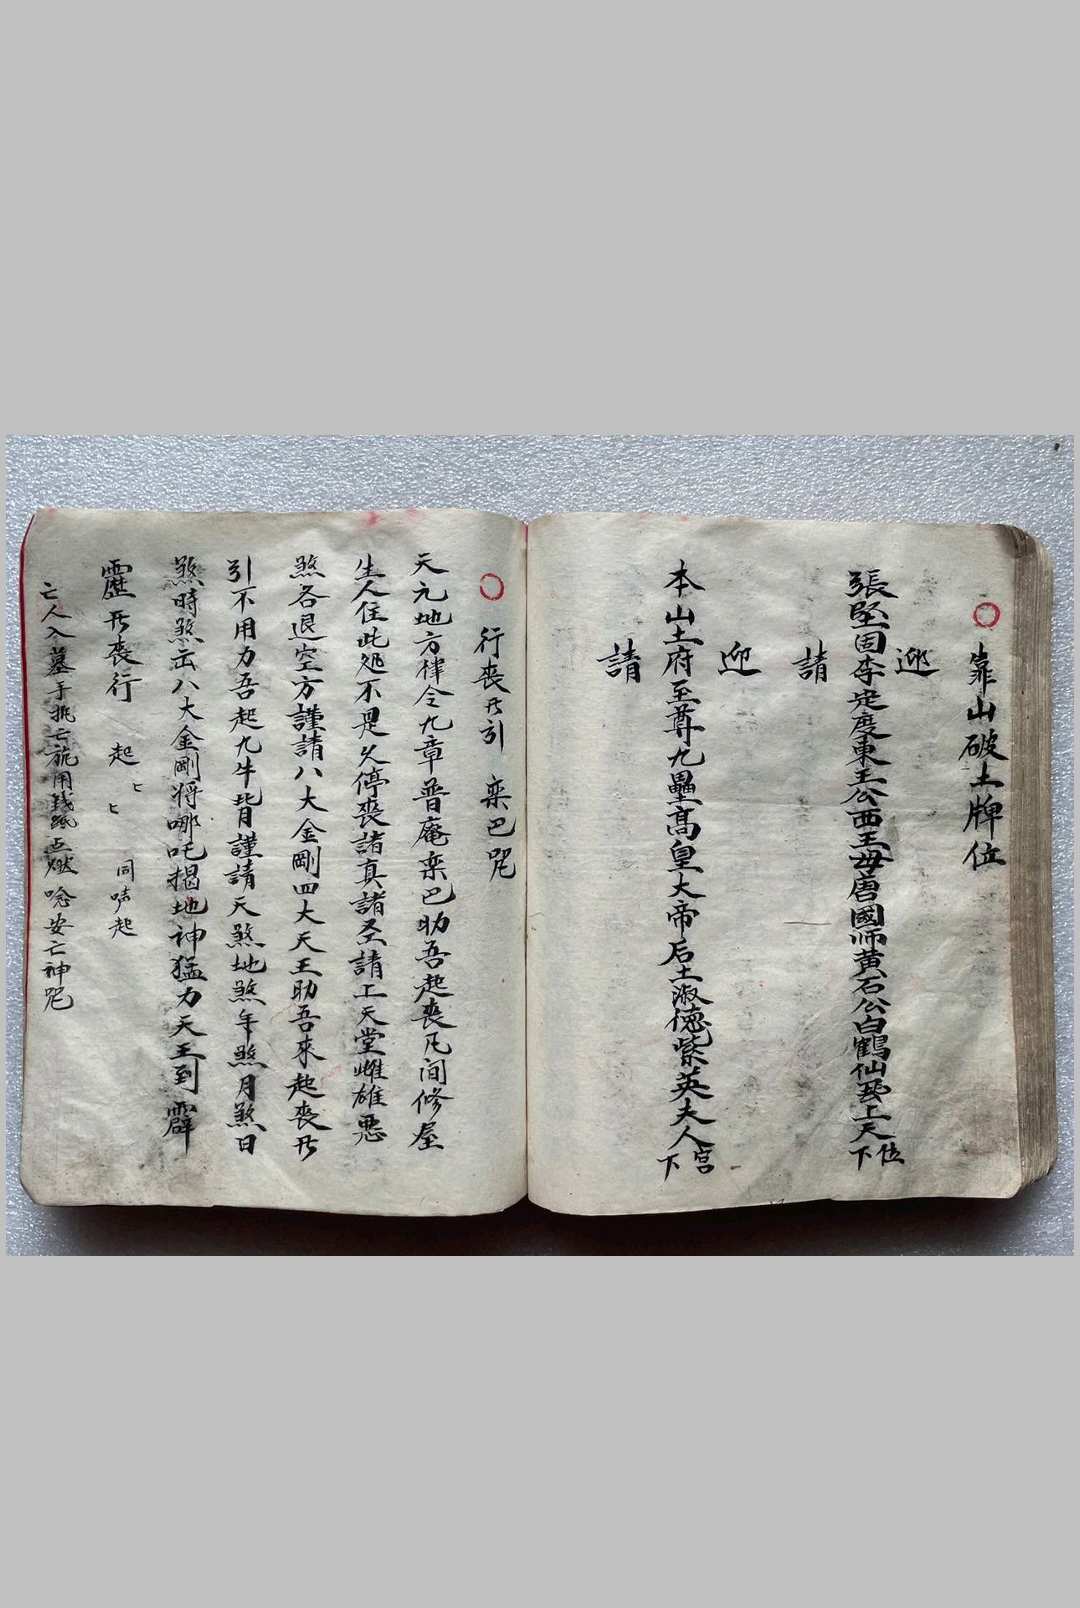 ○ 靠山破土牌位
迎
張堅固李定度東王公西王母唐國师黄石公白鶴仙 上天下位
請
迎
本山土府至尊九壘高皇大帝后土淑德紫英夫人宫下
請
○ 行丧 引 栾巴咒
天元地方律令九章普庵栾巴助吾起丧凡间修屋
生人住此処不是久停丧諸真諸圣請上天堂雌雄恶
煞各退空方謹請八大金剛四大天王助吾來起丧
引不用力吾起九牛皆謹請天煞地煞年煞月煞日
煞時煞 八大金剛将哪吒揭地神猛力天王到霹
靂 丧行 起ヒヒ 同声起
亡人入墓手 亡 用钱紙点燃唸安亡神咒